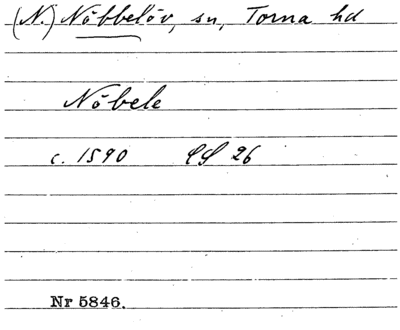 (N.) Nöbbelöv, sn, Torna hd
Nöbele
c. 1590 LS 26
Nr 5846.